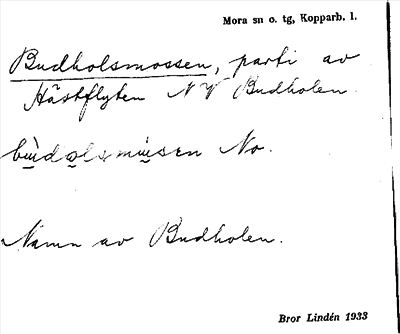 Mora sn o. tg, Kopparb. l.
Budholsmossen, parti av
Hästflyten NV Budholen.
No.
Namn av Budholen.
Bror Lindén 1933